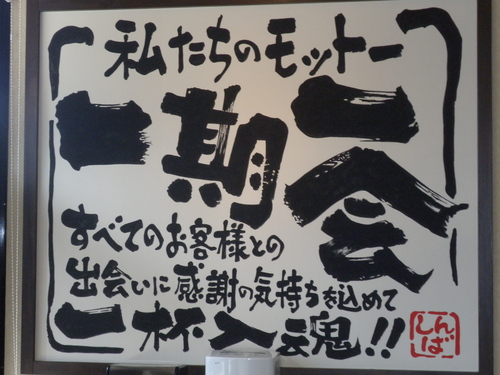 私たちのモットー
一期一会
すべてのお客様との
出会いに感謝の気持ちを込めて
一杯入魂!!
しんば